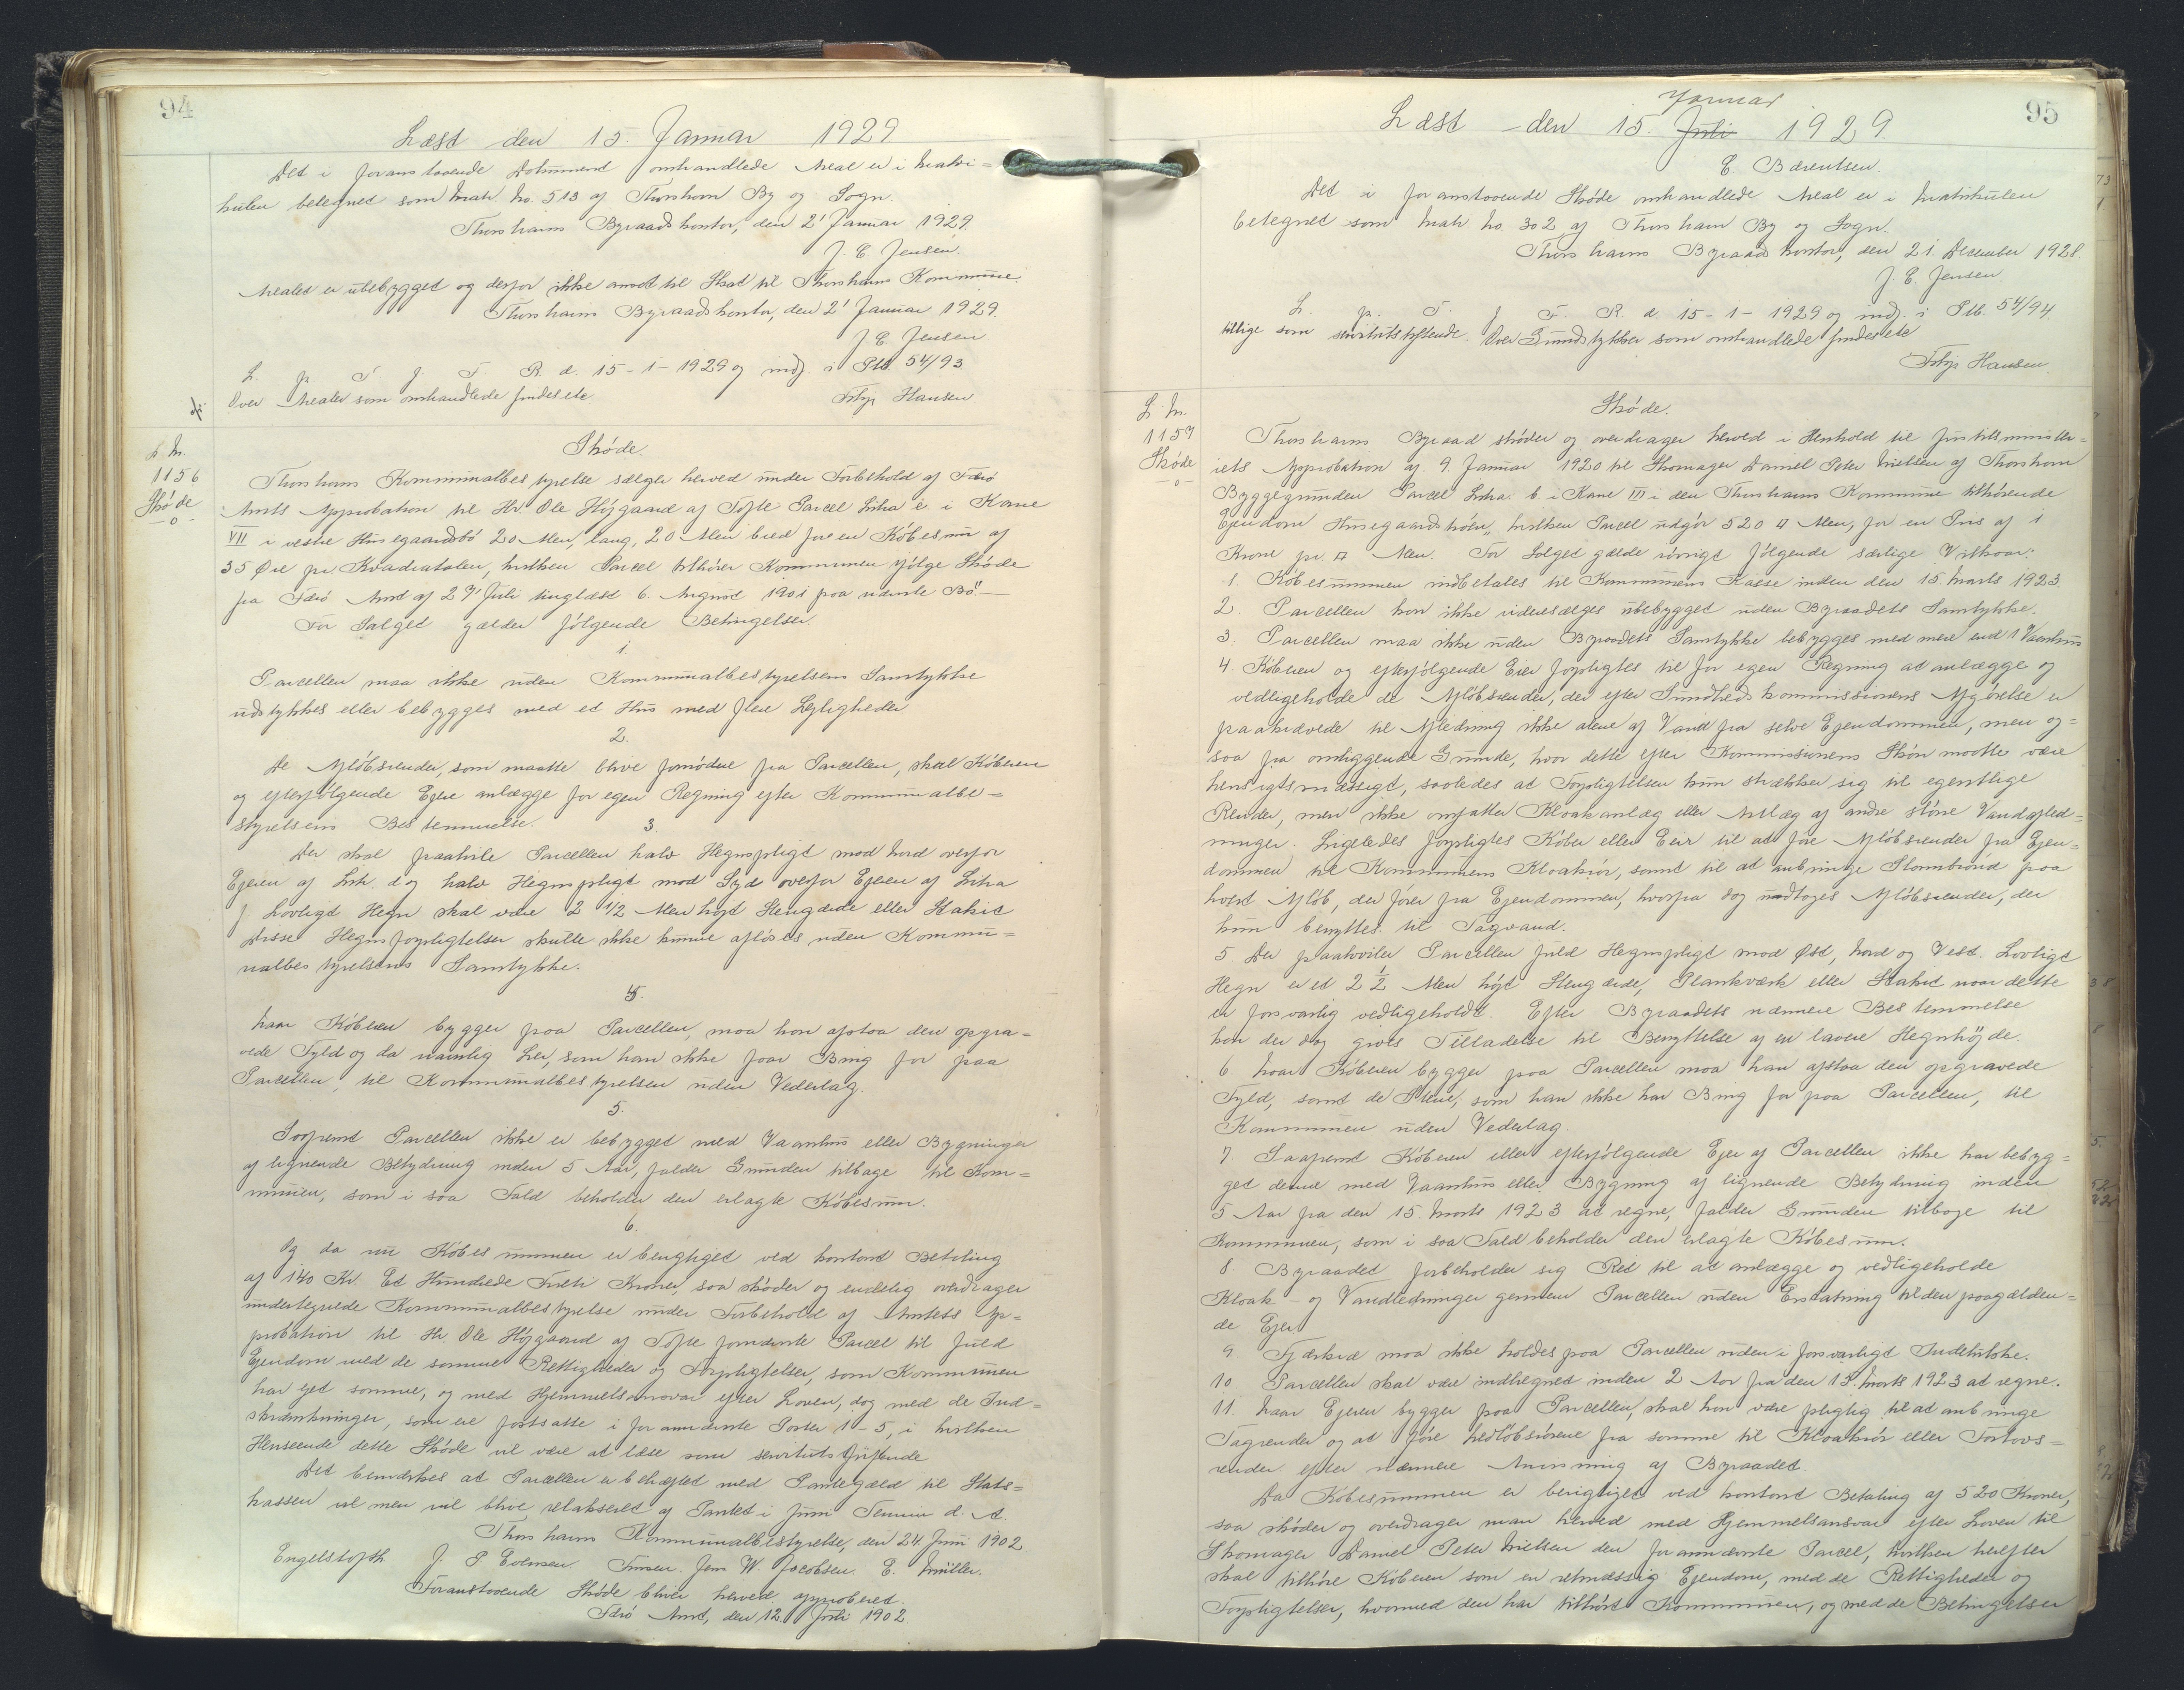 94
Læst den 15. Januar 1929
Det i foranstaaende Dokument omhandlede Areal er i Matri=
kulen betegnet som Matr. No. 513 af Thorshavn By og Sogn.
Thorshavns Byraadskontor, den 2' Januar 1929.
J. E. Jensen.
Arealet er ubebygget og derfor ikke ansat til Skat til Thorshavns Kommune.
Thorshavns Byraadskontor, den 2' Januar 1929.
J. E. Jensen
L. p. T. f. F. R. d. 15-1-1929 og indf. i Ptb. 54/93.
Over Arealer som omhandlede findes etc.
Hansen
L. N.
1156
Skøde
-o-
Skøde.
Thorshavns Kommunalbestyrelse sælger herved under Forbehold af Færø
Amts Approbation til Hr. Ole Højgaard af Tofte Parcel Litra e i Karré
VII i vestre Husegaardsbø 20 Alen lang, 20 Alen bred for en Købesum af
35 Øre pr Kvadratalen, hvilken Parcel tilhører Kommunen ifølge Skøde
fra Færø Amt af 27' Juli tinglæst 6. August 1901 paa nævnte Bø.—
For Salget gælder følgende Betingelser.
1.
Parcellen maa ikke uden Kommunalbestyrelsens Samtykke
udstykkes eller bebygges med et Hus med flere Lejligheder
2.
De Afløbsrender, som maatte blive fornødne fra Parcellen, skal Køberen
og efterfølgende Ejere anlægge for egen Regning efter Kommunalbe=
styrelsens Bestemmelse.
3.
Der skal paahvile Parcellen halv Hegnspligt mod Nord overfor
Ejeren af Litr. d og halv Hegnspligt mod Syd overfor Ejeren af Litra
f. Lovligt Hegn skal være 2 1/2 Alen højt Stengærde eller Stakit
Disse Hegnsforpligtelser skulle ikke kunne afløses uden Kommu=
nalbestyrelsens Samtykke.
4.
Naar Køberen bygger paa Parcellen, maa han afstaa den opgra=
vede Fyld og da navnlig Ler, som han ikke faar Brug for paa
Parcellen, til Kommunalbestyrelsen uden Vederlag.
5.
Saafremt Parcellen ikke er bebygget med Vaanhus eller Bygninger
af lignende Betydning inden 5 Aar, falder Grunden tilbage til Kom=
munen, som i saa Fald beholder den erlagte Købesum.
6.
Og da nu Købesummen er berigtiget ved kontant Betaling
af 140 Kr. Et Hundrede Firti Kroner, saa skøder og endelig overdrager
undertegnede Kommunalbestyrelse under Forbehold af Amtets Ap=
probation til Hr. Ole Højgaard af Tofte fornævnte Parcel til fuld
Ejendom med de samme Rettigheder og Forpligtelser, som Kommunen
har ejet samme, og med Hjemmelsansvar efter Loven, dog med de Ind=
skrænkninger, som ere fastsatte i forannævnte Poster 1-5, i hvilken
Henseende dette Skøde vil være at læse som servitutstiftende
Det bemærkes at Parcellen er behæftet med Pantegæld til Stats=
kassen men vil blive relakseret af Pantet i Juni Termin d. A.
Thorshavns Kommunalbestyrelse, den 24. Juni 1902
Engelstoft. J. P. Joensen. Jens W. Jacobsen. E. Müller.
Foranstaaende Skøde bliver herved approberet.
Færø Amt, den 12. Juli 1902.
95
Januar
Læst den 15. Juli 1929
E Bærentsen.
Det i foranstaaende Skøde omhandlede Areal er i Matrikulen
betegnet som Matr. No. 302 af Thorshavn By og Sogn.
Thorshavns Byraadskontor, den 21. December 1928.
J. E. Jensen.
L. p. T. f. F. R. d. 15-1-1929 og indf. i Ptb. 54/94
tillige som servitutstiftende. Over Grundstykker som omhandlede findes etc
Hansen.
L. N.
1157
Skøde
-o-
Skøde.
Thorshavns Byraad skøder og overdrager herved i Henhold til Justitsministe=
riets Approbation af 9. Januar 1920 til Skomager Daniel Peter Nielsen af Thorshavn
Byggegrunden Parcel Litra b. i Karré III i den Thorshavns Kommune tilhørende
Ejendom "Husegaardstrøen", hvilken Parcel udgør 520 □ Alen, for en Pris af 1
Krone pr. □ Alen. For Salget gælde iøvrigt følgende særlige Vilkaar:
1. Købesummen indbetales til Kommunens Kasse inden den 15. Marts 1923.
2. Parcellen kan ikke videresælges ubebygget uden Byraadets Samtykke.
3. Parcellen maa ikke uden Byraadets Samtykke bebygges med mere end 1 Vaanhus
4. Køberen og efterfølgende Ejer forpligtes til for egen Regning at anlægge og
vedligeholde de Afløbsrender, der efter Sundhedskommissionens Afgørelse er
paakrævede til Afledning ikke alene af Vand fra selve Ejendommen, men og=
saa fra omliggende Grunde, hvor dette efter Kommissionens Skøn maatte være
hensigtsmæssigt, saaledes at Forpligtelsen kun strækker sig til egentlige
Render, men ikke omfatter Kloakanlæg eller Anlæg af andre større Vandafled=
ninger. Ligeledes forpligtes Køber eller Ejer til at føre Afløbsrender fra Ejen=
dommen til Kommunens Kloakrør, samt til at anbringe Slambrønd paa
hvert Afløb, der fører fra Ejendommen, hvorfra dog undtages Afløbsrender, der
kun benyttes til Tagvand.
5. Der paahviler Parcellen fuld Hegnspligt mod Øst, Nord og Vest. Lovligt
Hegn er et 2 1/2 Alen højt Stengærde, Plankværk eller Stakit naar dette
er forsvarlig vedligeholdt. Efter Byraadets nærmere Bestemmelse
kan der dog gives Tilladelse til Benyttelse af en lavere Hegnhøjde.
6. Naar Køberen bygger paa Parcellen maa han afstaa den opgravede
Fyld, samt de Stene, som han ikke har Brug for paa Parcellen, til
Kommunen uden Vederlag.
7. Saafremt Køberen eller efterfølgende Ejer af Parcellen ikke har bebyg=
get denne med Vaanhus eller Bygning af lignende Betydning inden
5 Aar fra den 15. Marts 1923 at regne, falder Grunden tilbage til
Kommunen, som i saa Fald beholder den erlagte Købesum.
8. Byraadet forbeholder sig Ret til at anlægge og vedligeholde
Kloak- og Vandledninger gennem Parcellen uden Erstatning til den paagælden=
de Ejer
9 Fjerkræ maa ikke holdes paa Parcellen uden i forsvarligt Indelukke.
10. Parcellen skal være indhegnet inden 2 Aar fra den 15. Marts 1923 at regne.
11. Naar Ejeren bygger paa Parcellen, skal han være pligtig til at anbringe
Tagrender og at føre Nedløbsrørene fra samme til Kloakrør eller Fortovs=
render efter nærmere Anvisning af Byraadet.
Da Købesummen er berigtiget ved kontant Betaling af 520 Kroner,
saa skøder og overdrager man herved med Hjemmelsansvar efter Loven til
Skomager Daniel Peter Nielsen den forannævnte Parcel, hvilken herefter
skal tilhøre Køberen som en retmæssig Ejendom, med de Rettigheder og
Forpligtelser, hvormed den har tilhørt Kommunen, og med de Betingelser